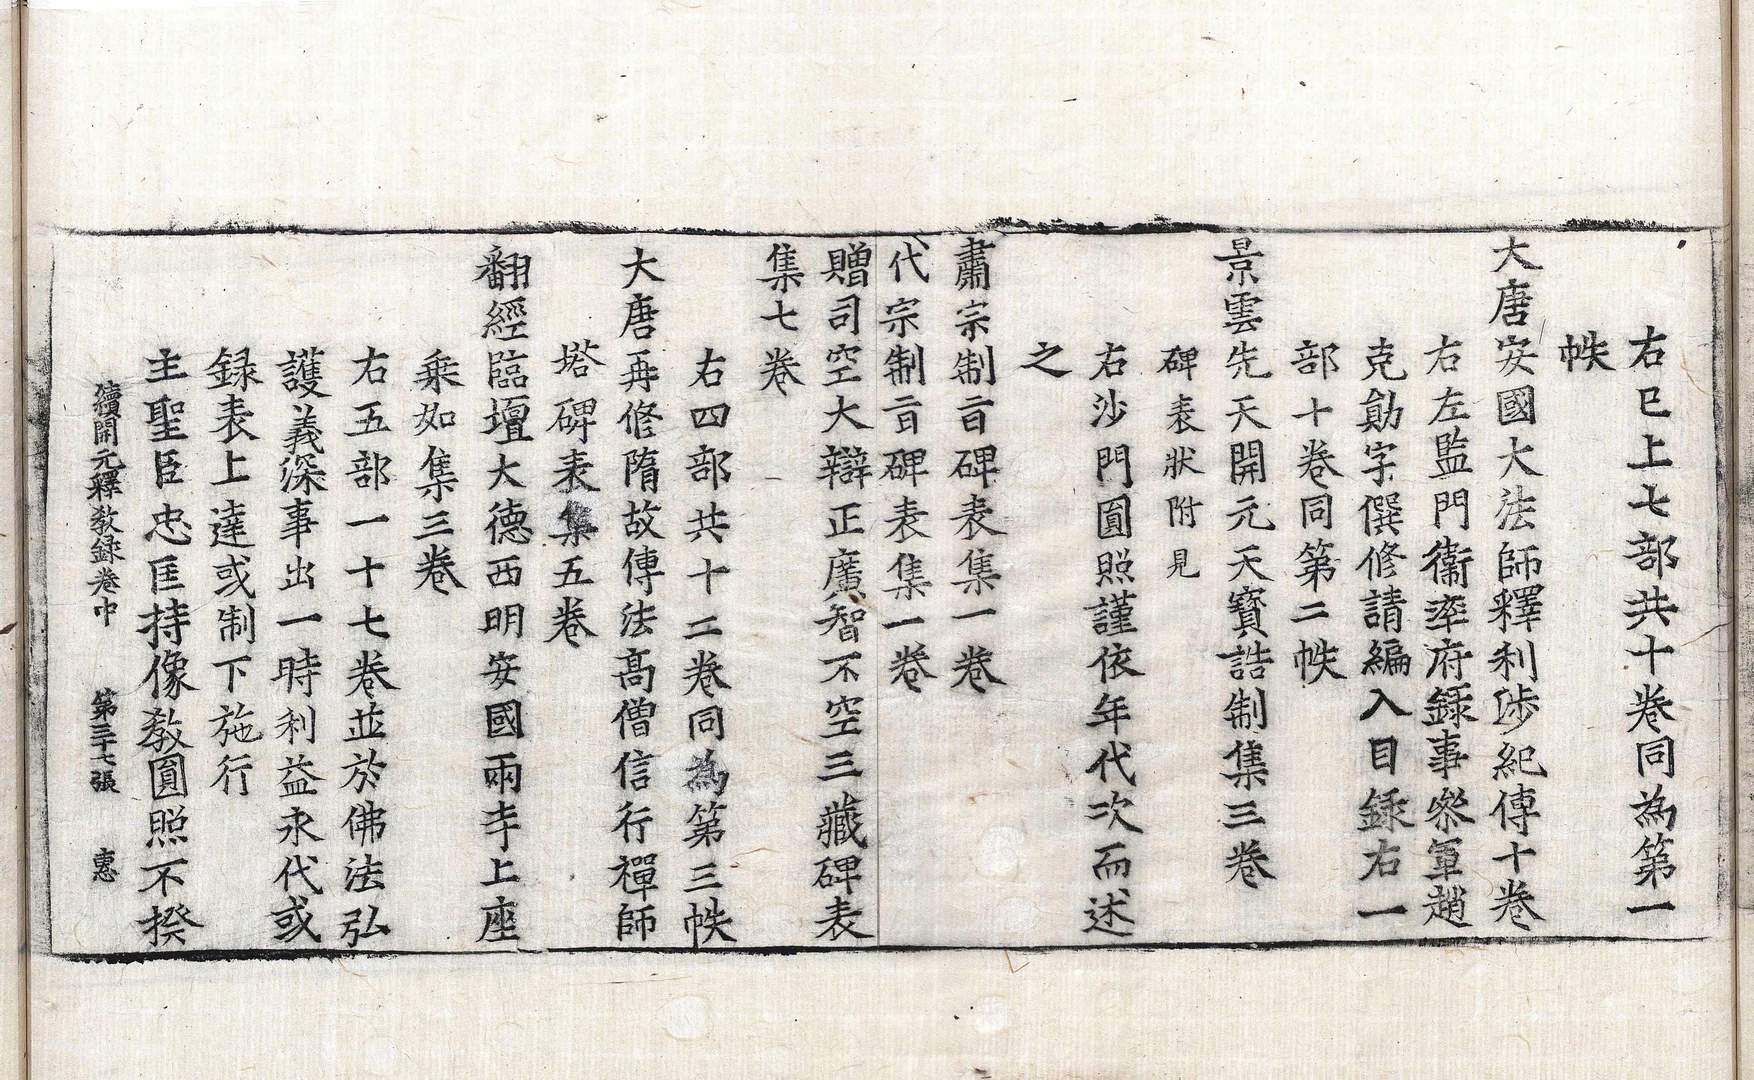 右已上七部共十卷同為第一
帙
大唐安國大法師釋利涉紀傳十卷
右左監門衞率府録事叅軍趙
克勛字僎修請編入目録右一
部十卷同第二帙
景雲先天開元天寳誥制集三卷
碑表狀附見
右沙門圓照謹依年代次而述
之
肅宗制旨碑表集一卷
代宗制旨碑表集一卷
贈司空大辯正廣智不空三藏碑表
集七卷
右四部共十二卷同為第三帙
大唐再修隋故傳法髙僧信行禪師
塔碑表集五卷
翻經臨壇大德西明安國兩寺上座
乗如集三卷
右五部一十七卷並於佛法弘
護義深事出一時利益永代或
録表上達或制下施行
主聖臣忠匡持像敎圓照不揆
續開元釋敎録卷中　第三十七張　惠